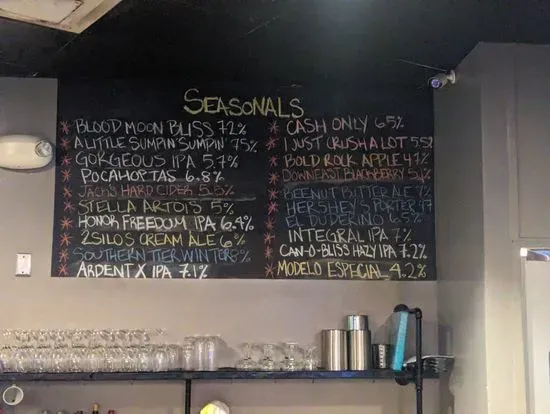 SEASONALS
* BLOOD MOON BLISS 7.2%
* A LITTLE SUMPIN' SUMPIN' 7.5%
* GORGEOUS IPA 5.7%
* POCAHOPTAS 6.8%
* JACK'S HARD CIDER 5.5%
* STELLA ARTOIS 5%
* HONOR FREEDOM IPA 6.4%
* 2SILOS CREAM ALE 6%
* SOUTHERN TIER WINTER 8%
* ARDENT X IPA 7.1%
* CASH ONLY 6.5%
* I JUST CRUSH A LOT 5.5%
* BOLD ROCK APPLE 4.7%
* DOWNEAST BLACKBERRY 5.1%
* BEENUT BITTER ALE 7%
* HERSHEY'S PORTER
* EL DUDERINO 6.5%
* INTEGRAL IPA 7%
* CAN-O-BLISS HAZY IPA 7.2%
* MODELO ESPECIAL 4.2%